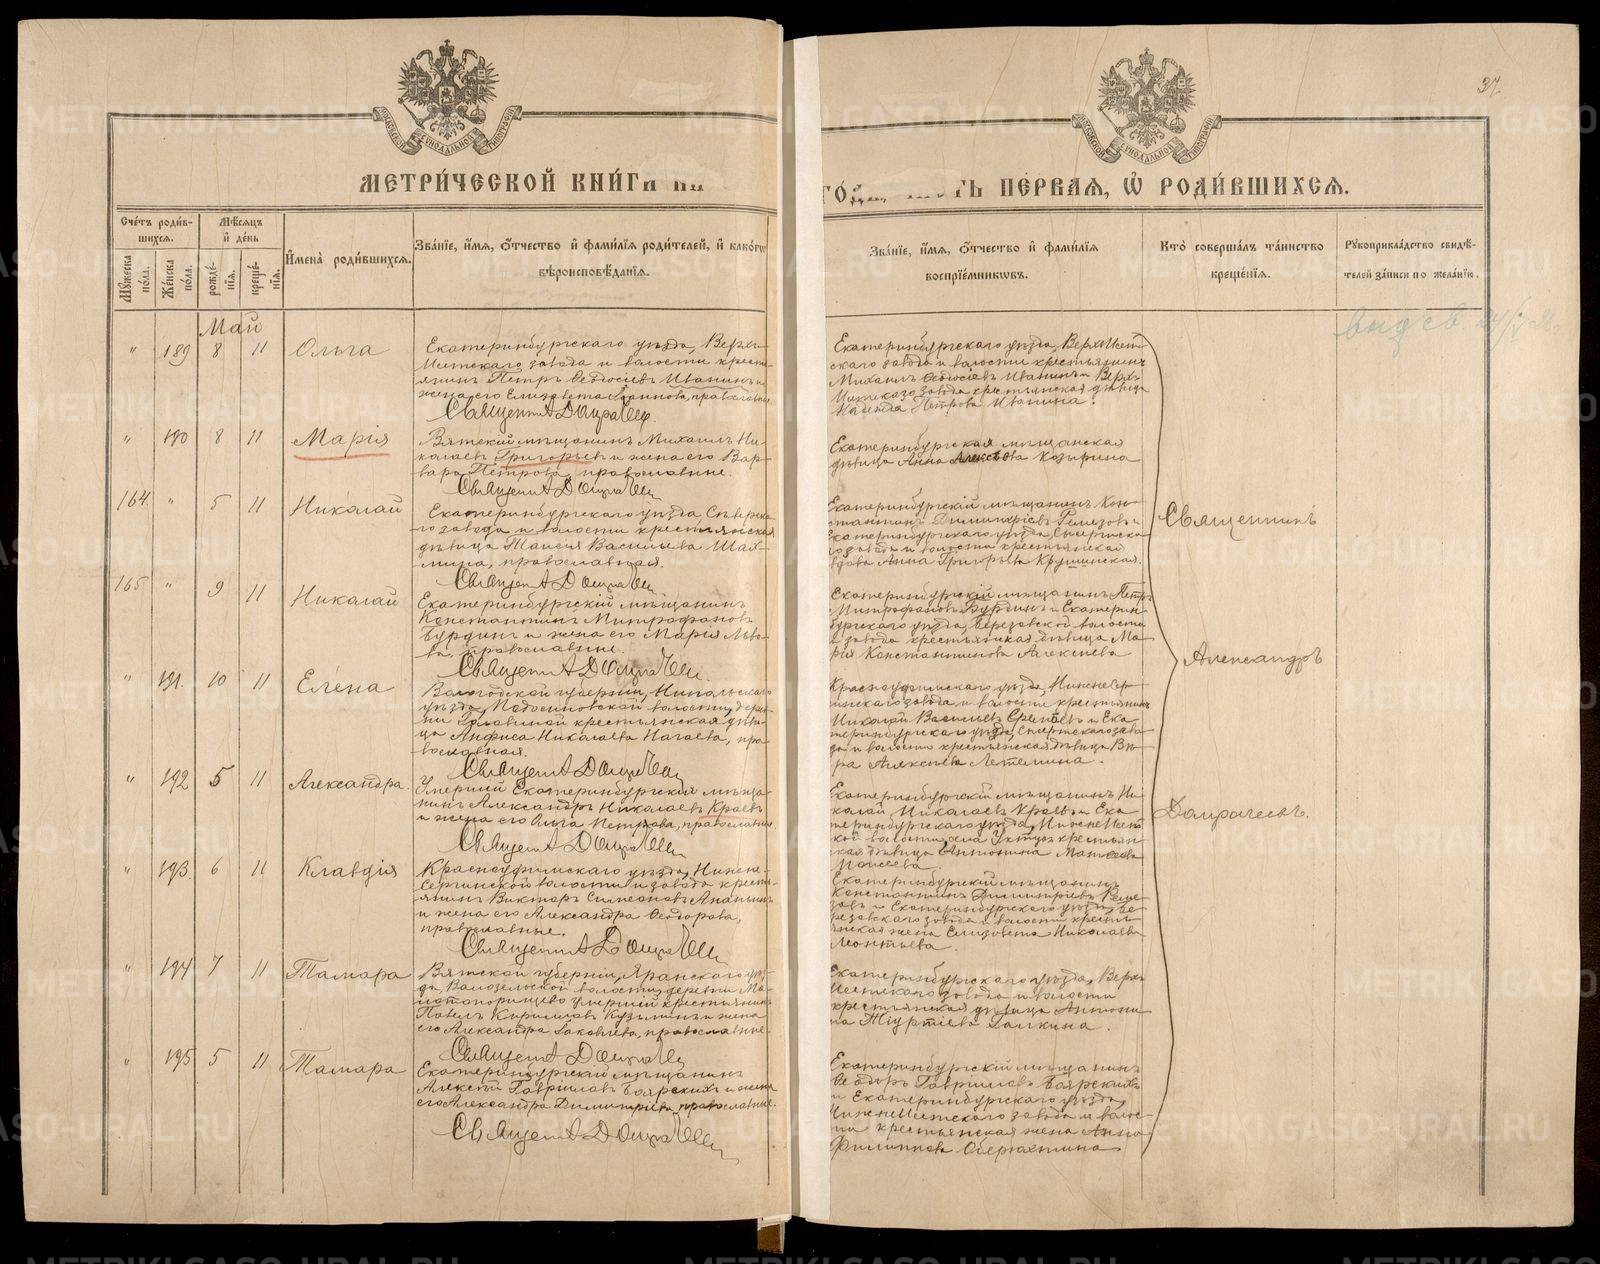 37
МЕТРИ́ЧЕСКОЙ КНИ́ГИ НА
ПЕ́РВАЯ, Ѡ҆ РОДИ́ВШИХСЯ.
Сче́тъ роди́в-
шихся.
Мѣ́сяцъ
и҆ де́нь
Мꙋ́жеска по́ла.
Же́нска по́ла.
рожде́-
нїя.
креще́-
нїя.
И҆мена̀ роди́вшихся.
Зва́нїе, и҆́мя, ѻ҆́тчество и҆ фами́лїя роди́телей, и҆ како́гѡ
вѣроисповѣ́данїя.
Зва́нїе, и҆́мя, ѻ҆́тчество и҆ фами́лїя
воспрїе́мникѡвъ.
Кто̀ соверша́лъ та́инство
креще́нїя.
Рꙋкоприкла́дство свидѣ́-
телей за́писи по жела́нїю.
Май
" 189 8 11 Ольга
Екатеринбургскаго уѣзда, Верхъ-
Исетскаго завода и волости кресть-
янинъ Петръ Ѳеодосіевъ Иванинъ и
жена его Елизавета Іоаннова, православные.
Екатеринбургскаго уѣзда, Верх-Исет-
скаго завода и волости крестьянинъ
Михаилъ Ѳеодосіевъ Иванинъ и Верх-
Исетскаго завода крестьянская дѣвица
Петрова Иванина.
" 190 8 11 Марія
Вятскій мѣщанинъ Михаилъ Ни-
колаевъ Григорьевъ и жена его Вар-
вара Петрова, православные.
Екатеринбургская мѣщанская
дѣвица Анна Алексѣева Козырина
164 " 5 11 Николай
Екатеринбургскаго уѣзда Сѣверска-
го завода и волости крестьянская
дѣвица Таисія Васильева Шах-
мина, православная.
Екатеринбургскій мѣщанинъ Кон-
стантинъ Димитріевъ Ремезовъ и
Екатеринбургскаго уѣзда,
го завода и волости крестьянская
вдова Анна Григорьева Крушинская.
165 " 9 11 Николай
Екатеринбургскій мѣщанинъ
Константинъ Митрофановъ
Бурдинъ и жена его Марія Льво-
ва, православные.
Екатеринбургскій мѣщанинъ Петръ
Митрофановъ Бурдинъ и Екатерин-
бургскаго уѣзда, Березовской волости
и завода крестьянская дѣвица Ма-
рія Константинова Алексѣева
" 191 10 11 Елена
Вологодской губерніи, Никольскаго
уѣзда, Подосиновской волости, дерев-
ни Головиной крестьянская дѣви-
ца Анфиса Николаева Нагаева, пра-
вославная.
Красноуфимскаго уѣзда, Нижнесер-
гинскаго завода и волости крестьянинъ
Николай Васильевъ и Ека-
теринбургскаго уѣзда, Сысертскаго заво-
да и волости крестьянская дѣвица Вѣ-
ра Алексѣева Летемина.
" 192 5 11 Александра
Умершій Екатеринбургскій мѣща-
нинъ Александръ Николаевъ Краевъ
и жена его Ольга Петрова, православные.
Екатеринбургскій мѣщанинъ Ни-
колай Николаевъ Краевъ и Ека-
теринбургскаго уѣзда, Нижнеисет-
ской волости, села Уктуса крестьян-
ская дѣвица Антонина Матѳеева
Моисеева
" 193 6 11 Клавдія
Красноуфимскаго уѣзда, Нижне-
Сергинской волости и завода кресть-
янинъ Викторъ Симеоновъ Ананьинъ
и жена его Александра Ѳеодорова,
православные.
Екатеринбургскій мѣщанинъ
Константинъ Димитріевъ Реме-
зовъ и Екатеринбургскаго уѣзда, Бе-
резовскаго завода и волости кресть-
янская жена Елизавета Николаева
Леонтьева.
" 194 7 11 Тамара
Вятской губерніи, Яранскаго уѣз-
да, волости, деревни
умершій крестьянинъ
Павелъ Кирилловъ Кузьминъ и жена
его Александра Іаковлева, православные.
Екатеринбургскаго уѣзда, Верхъ-
Исетскаго завода и волости
крестьянская дѣвица Антони-
на Галкина.
" 195 5 11 Тамара
Екатеринбургскій мѣщанинъ
Алексѣй Гавріиловъ Боярскихъ и жена
его Александра Димитріева, православные.
Екатеринбургскій мѣщанинъ
Ѳеодоръ Гавріиловъ Боярскихъ
и Екатеринбургскаго уѣзда,
Нижнеисетскаго завода и волос-
ти крестьянская жена Анна
Филиппова Оберюхтина
Священникъ
Александръ
METRIKI.GASO-URAL.RU